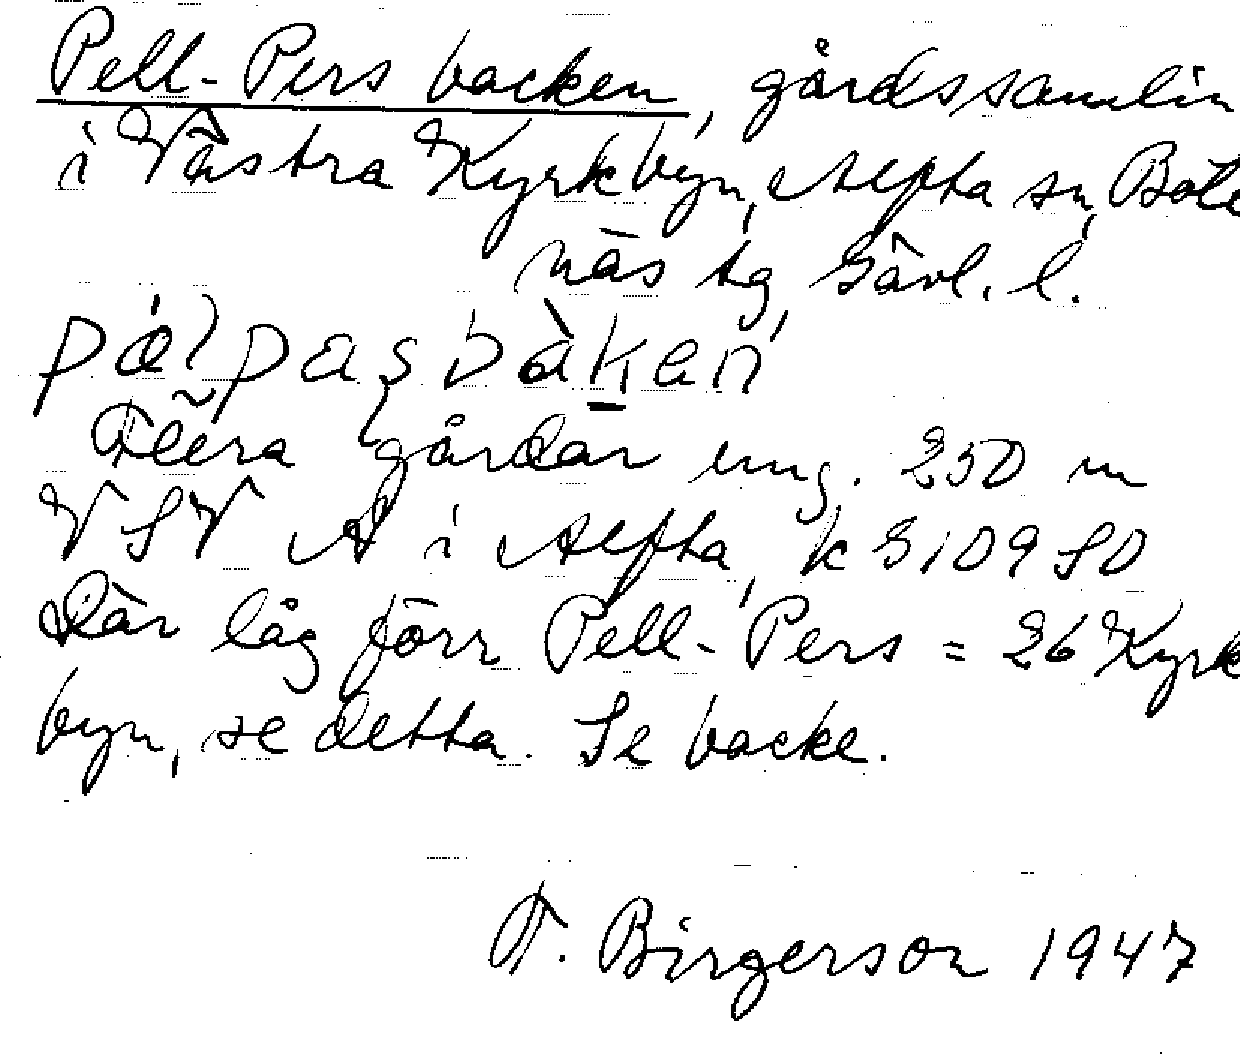 Pell-Pers backen, gårdssamlin
i Västra Kyrkbyn, Alfta sn, Boll
näs tg Gävl. l.
Flera gårdar ung. 250 m
VSV A i Alfta, k 310950
Där låg förr Pell-Pers = 26 Kyrk
byn, se detta. Se backe.
F. Birgerson 1947